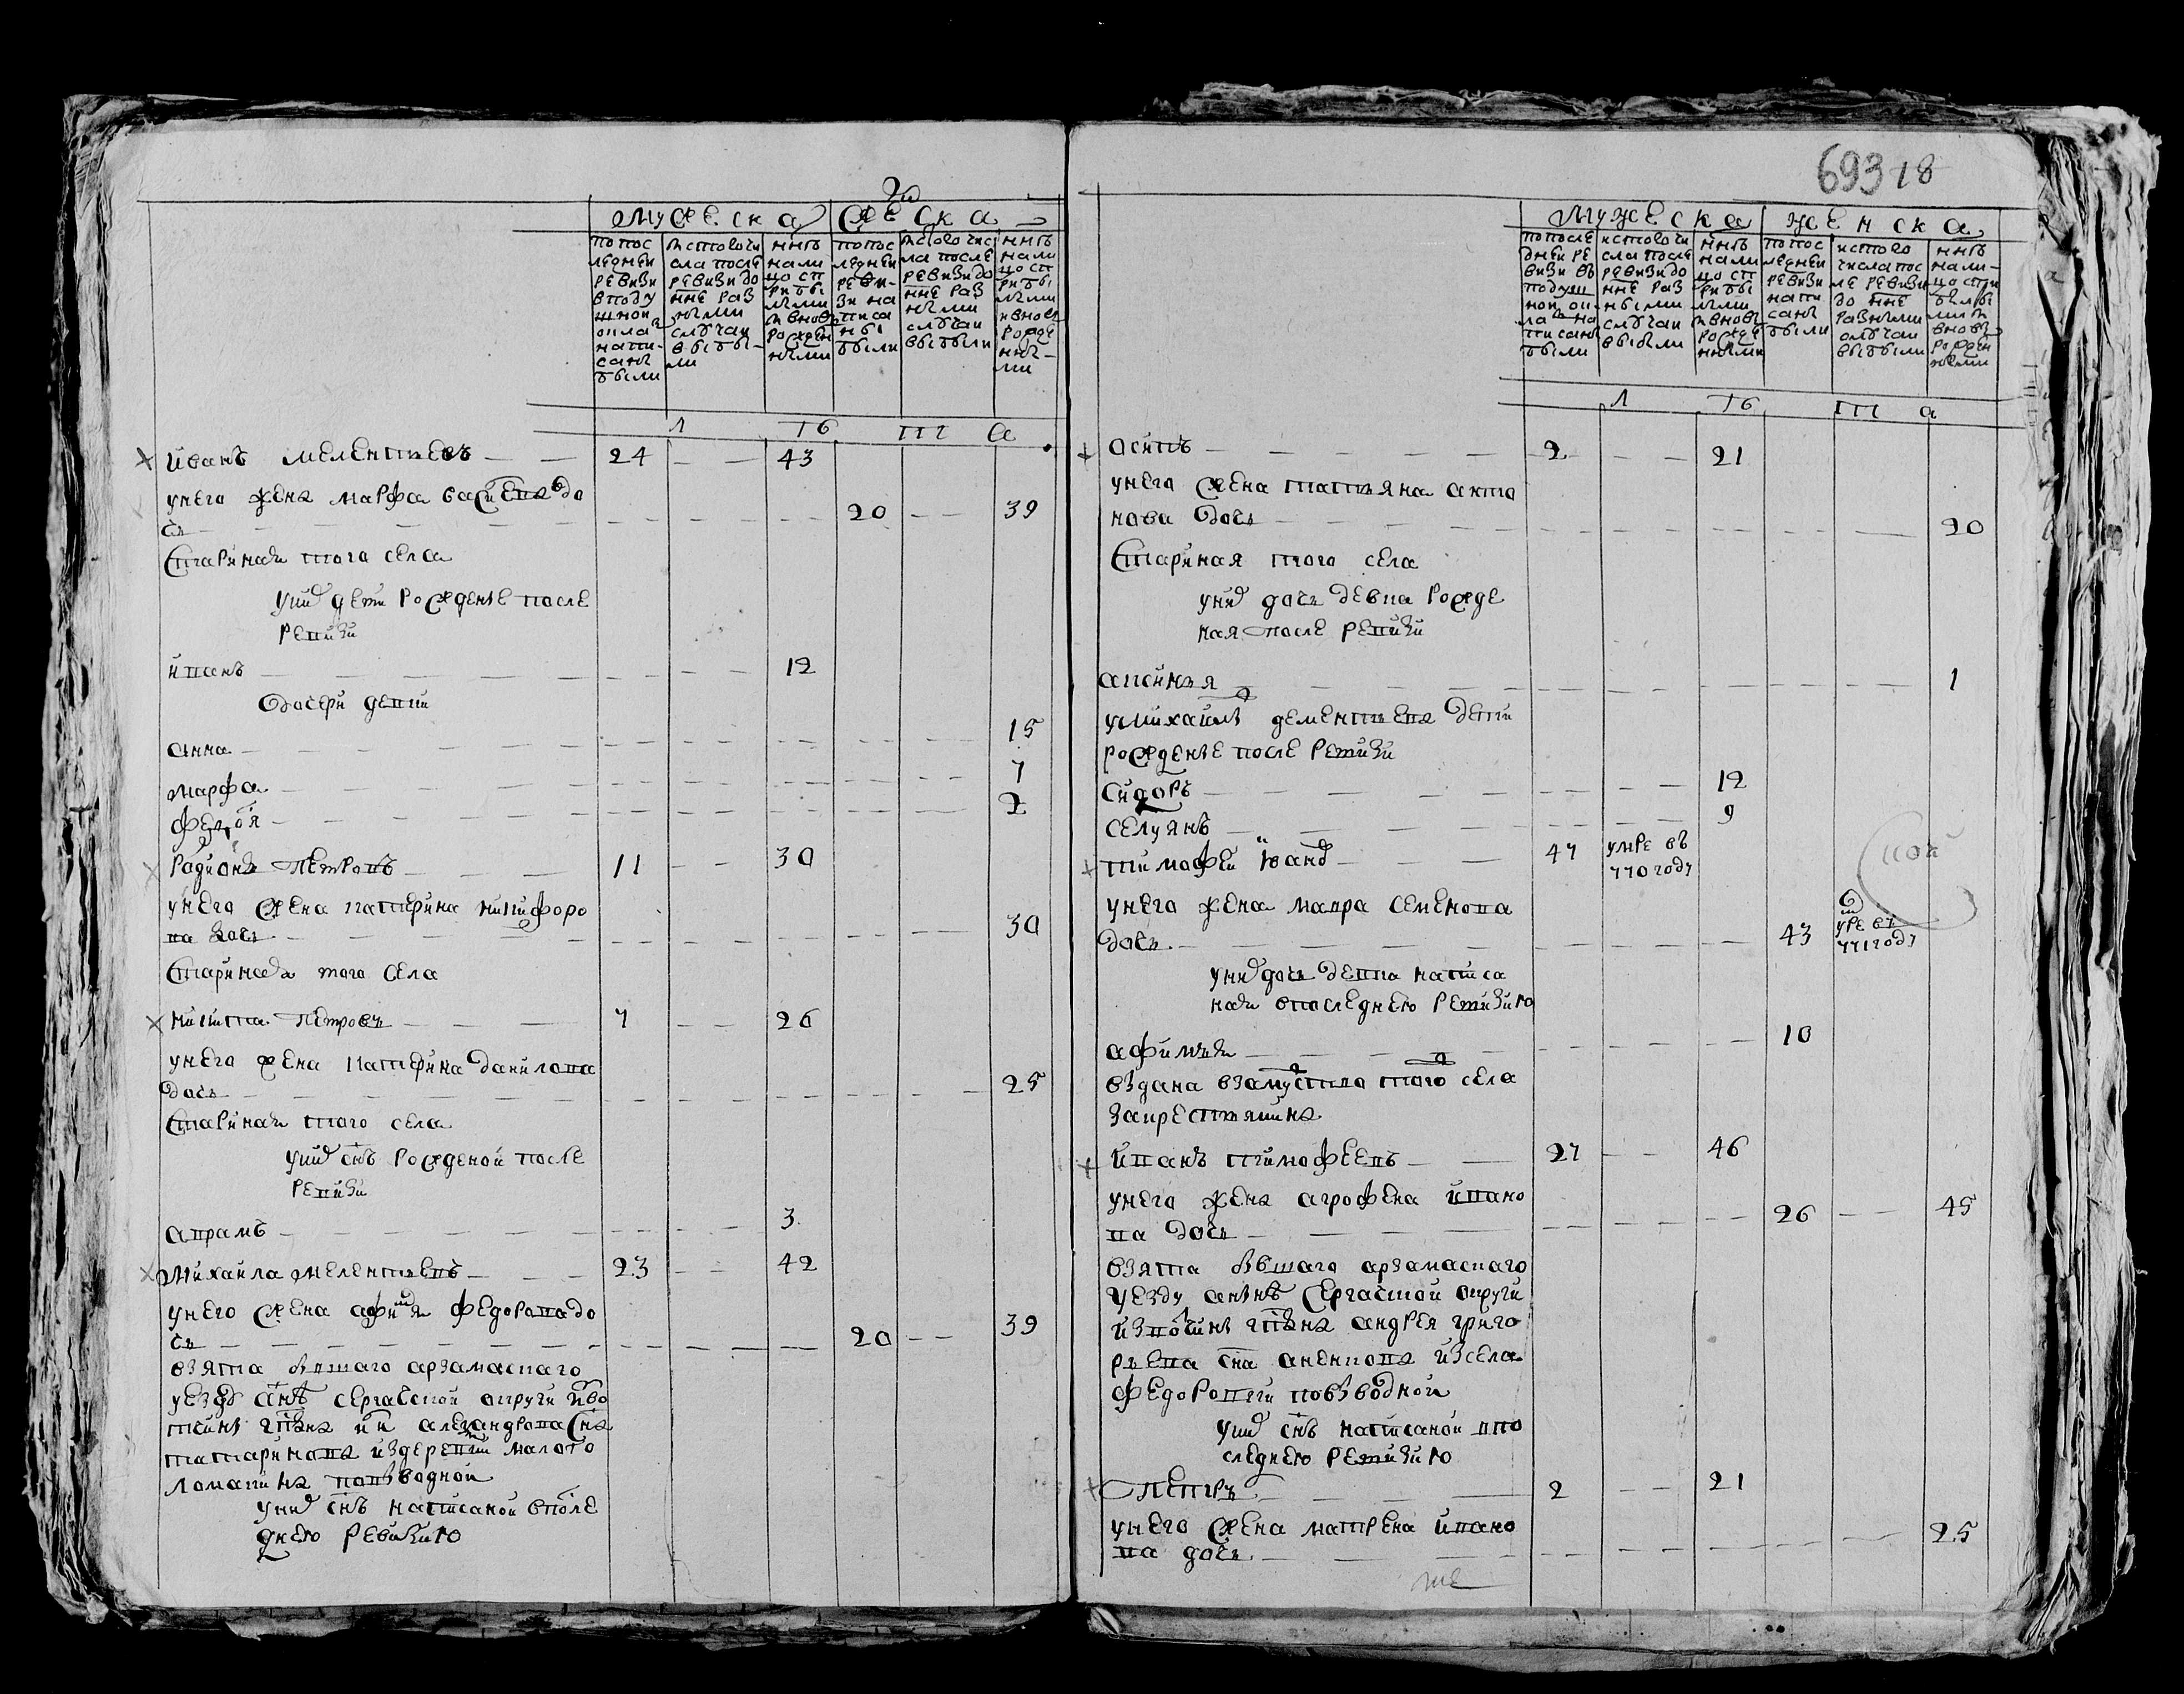 мужеска
женска
по пос
ледней
ревизи
в поду
шной
оклад
напи-
саны
были
ис того чи
сла после
ревизи до
нне раз
ными
случаи
выбы-
ли
ннѣ
нали
цо сп
рибы
лыми
и вновь
рожден
ными
по пос
ледней
реви-
зи на
писа
ны
были
ис того чис
ла после
ревизи до
нне раз
ными
случаи
выбыли
ннѣ
нали
цо сп
рибы
лыми
и вновь
рожде
ны-
ми
л т б ш а
Иванъ Мелентьевъ 24 43
у него жена марфа васильева до
чь 20 39
старинная того села
у них дети рожденые после
ревизи
иванъ 12
дочери девки
анна 15
марфа 7
федося 2
Родионъ Петровъ 11 30
у него жена катерина никифоро
ва дочь 30
старинная того села
никита Петровъ 7 26
у него жена катерина данилова
дочь 25
старинная того села
у них снъ рожденой после
ревизи
аврамъ 3
Михайла Мелентьевъ 23 42
у него жена афимья федорова до
чь 20 39
взята бывшаго арзамаскаго
уезду а ннѣ сергачской округи из во
тчины гпдна александрова сна
татаринова из деревни малого
ломакина по выводной
у них снъ написаной в после
днею ревизию
69318
мужеска
женска
по после
дней ре
визи въ
подуш
ной ок
ладъ на
писаны
были
ис того чи
сла после
ревизи до
нне раз
ными
случаи
выбыли
ннѣ
нали
цо сп
рибы
лыми
и вновь
рожде
ными
по пос
ледней
ревизи
напи
саны
были
ис того
числа пос
ле ревизи
до нне
разными
случаи
выбыли
ннѣ
нали-
цо спри
былы
ми и
вновь
рожден
ными
л т б ш а
осипъ 2 21
у него жена татьяна анто
нова дочь 20
старинная того села
у них дочь девка рожде
ная после ревизи
аксинья 1
у михайлы дементьева дети
рожденые после ревизи
сидоръ 12
селуянъ 9
тимофей Иванов 47 умре въ
770 году
у него жена мавра семенова
дочь 43 умре въ
771 году
у них дочь девка написа
ная в последнею ревизию
афимья 10
выдана в замужство того села
за крестьянина
иванъ тимофеевъ 27 46
у него жена агрофена ивано
ва дочь 26 45
взята бывшаго арзамаскаго
уезду а ннѣ сергачской округи
из вотчины гпдна андрея григо
рьева сна аненкова из села
федоровки по выводной
у них снъ написаной в по
следнею ревизию
Петръ 2 21
у него жена матрена ивано
ва дочь 25